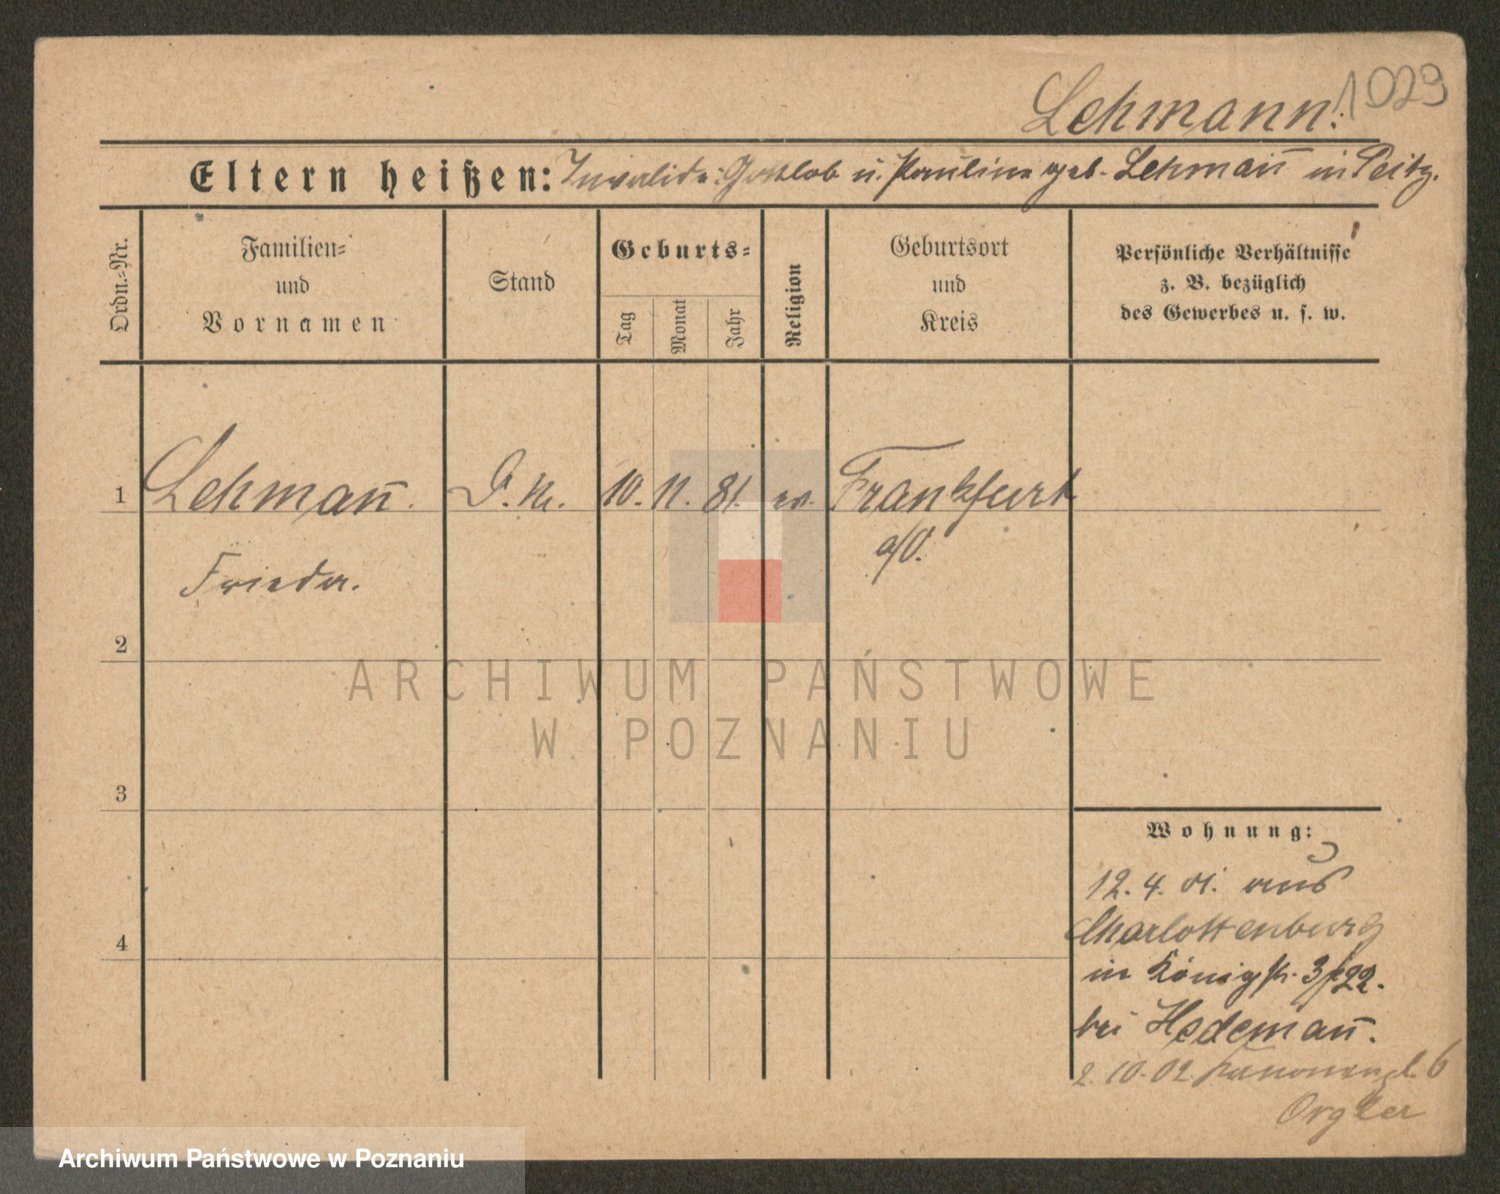 Lehmann. 1029
Eltern heißen: Invalide: Gottlob u. Pauline geb. Lehmañ in Peitz.
Ordn.-Nr.
Familien-
und
Vornamen
Stand
Geburts-
Tag
Monat
Jahr
Religion
Geburtsort
und
Kreis
Persönliche Verhältnisse
z. B. bezüglich
des Gewerbes u. s. w.
1 Lehmañ. 10. 11. 81. ev. Frankfurt
a/O.
Frieda.
2
3
4
ARCHIWUM PAŃSTWOWE
W POZNANIU
Wohnung:
12. 4. 01. aus
Charlottenburg
in Königstr. 3/22.
bei Hedemañ.
2. 10. 02. 6
Orgler
Archiwum Państwowe w Poznaniu